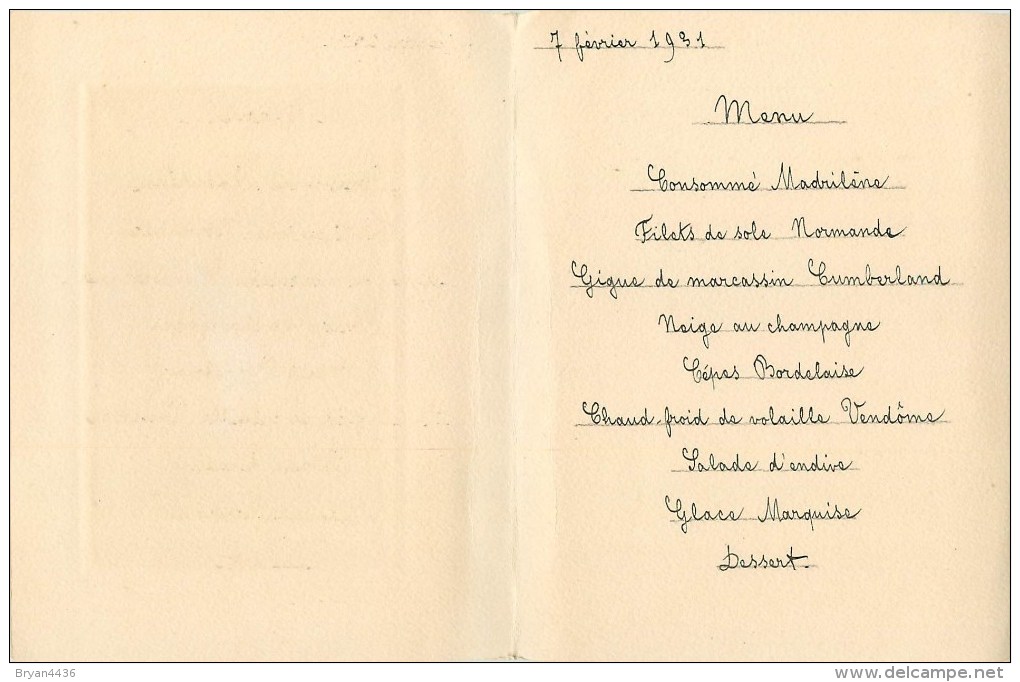 7 février 1931
Menu
Consommé Madrilène
Filets de sole Normande
Gigue de marcassin Cumberland
Neige au champagne
Cépes Bordelaise
Chaud-froid de volaille Vendôme
Salade d'endive
Glace Marquise
Dessert.
Bryan4436
www.delcampe.net